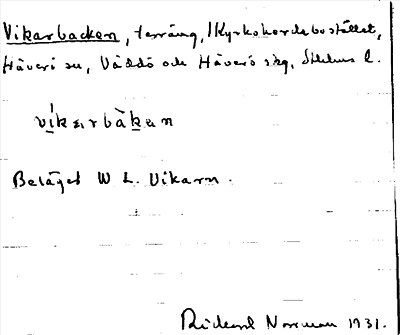 Vikarbacken, terräng, 1 Kyrkoherdebostället,
Häverö sn, Väddö och Häverö skg, Sthlms l.
vi̱kɐrbàkɐn
Beläget W L. Vikarn.
Rickard Norrman 1931.